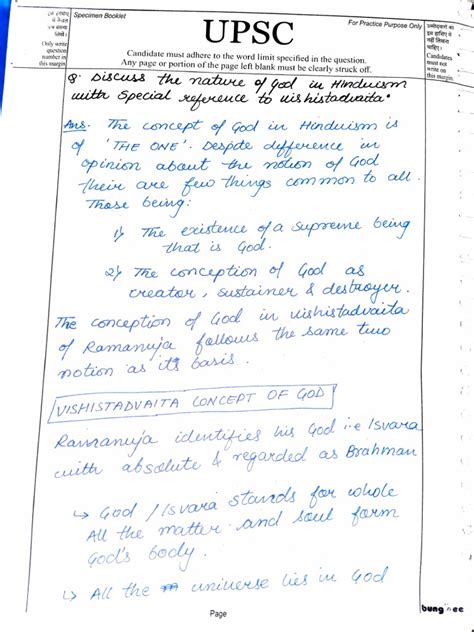 Specimen Booklet
For Practice Purpose Only
Only write
question
number in
this margin
UPSC
Candidate must adhere to the word limit specified in the question.
Any page or portion of the page left blank must be clearly struck off.
उम्मीदवारों को
इस हाशिए में
नहीं लिखना
चाहिए।
Candidates
must not
write on
this margin
8. Discuss the nature of God in Hinduism
with Special reference to vishistadvaita.
Ans. The concept of God in Hinduism is
of 'THE ONE'. Despite difference in
opinion about the notion of God
their are few things common to all.
Those being:
1) The existence of a Supreme being
that is God.
2) The conception of God as
creator, sustainer & destroyer.
The conception of God in vishistadvaita
of Ramanuja follows the same two
notion as its basis.
VISHISTADVAITA CONCEPT OF GOD
Ramanuja identifies his God i.e Isvara
with absolute & regarded as Brahman
↳ God / Isvara stands for whole
All the matter and soul form
God's body.
↳ All the universe lies in God
Page